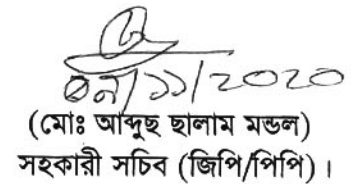 ০৯/১১/২০২০
(মোঃ আব্দুছ ছালাম মন্ডল)
সহকারী সচিব (জিপি/পিপি)।